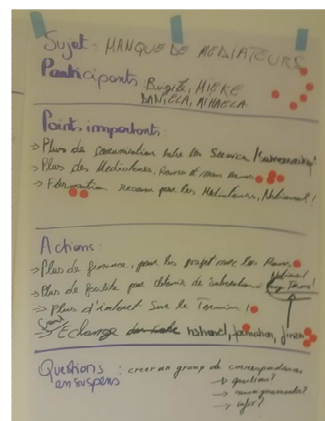 Sujet: MANQUE DE MEDIATEURS
Participants: Brigite, MIEKE
DANIELA, MIHAELA
Points importants:
→ Plus de comunication entre les Service /
→ Plus des Mediateurs, Roms et non Roms
→ Formation reconu pour les Mediateurs, National!
Actions:
→ Plus de finance, pour les projet avec les Roms.
→ Plus de facilité par obtenir de subvention - long Term!
→ Plus d'interet Sur le Terrain!
→ Echange national, formation,
Questions : creer un group de correspondance
en suspens → questions?
→ infos?